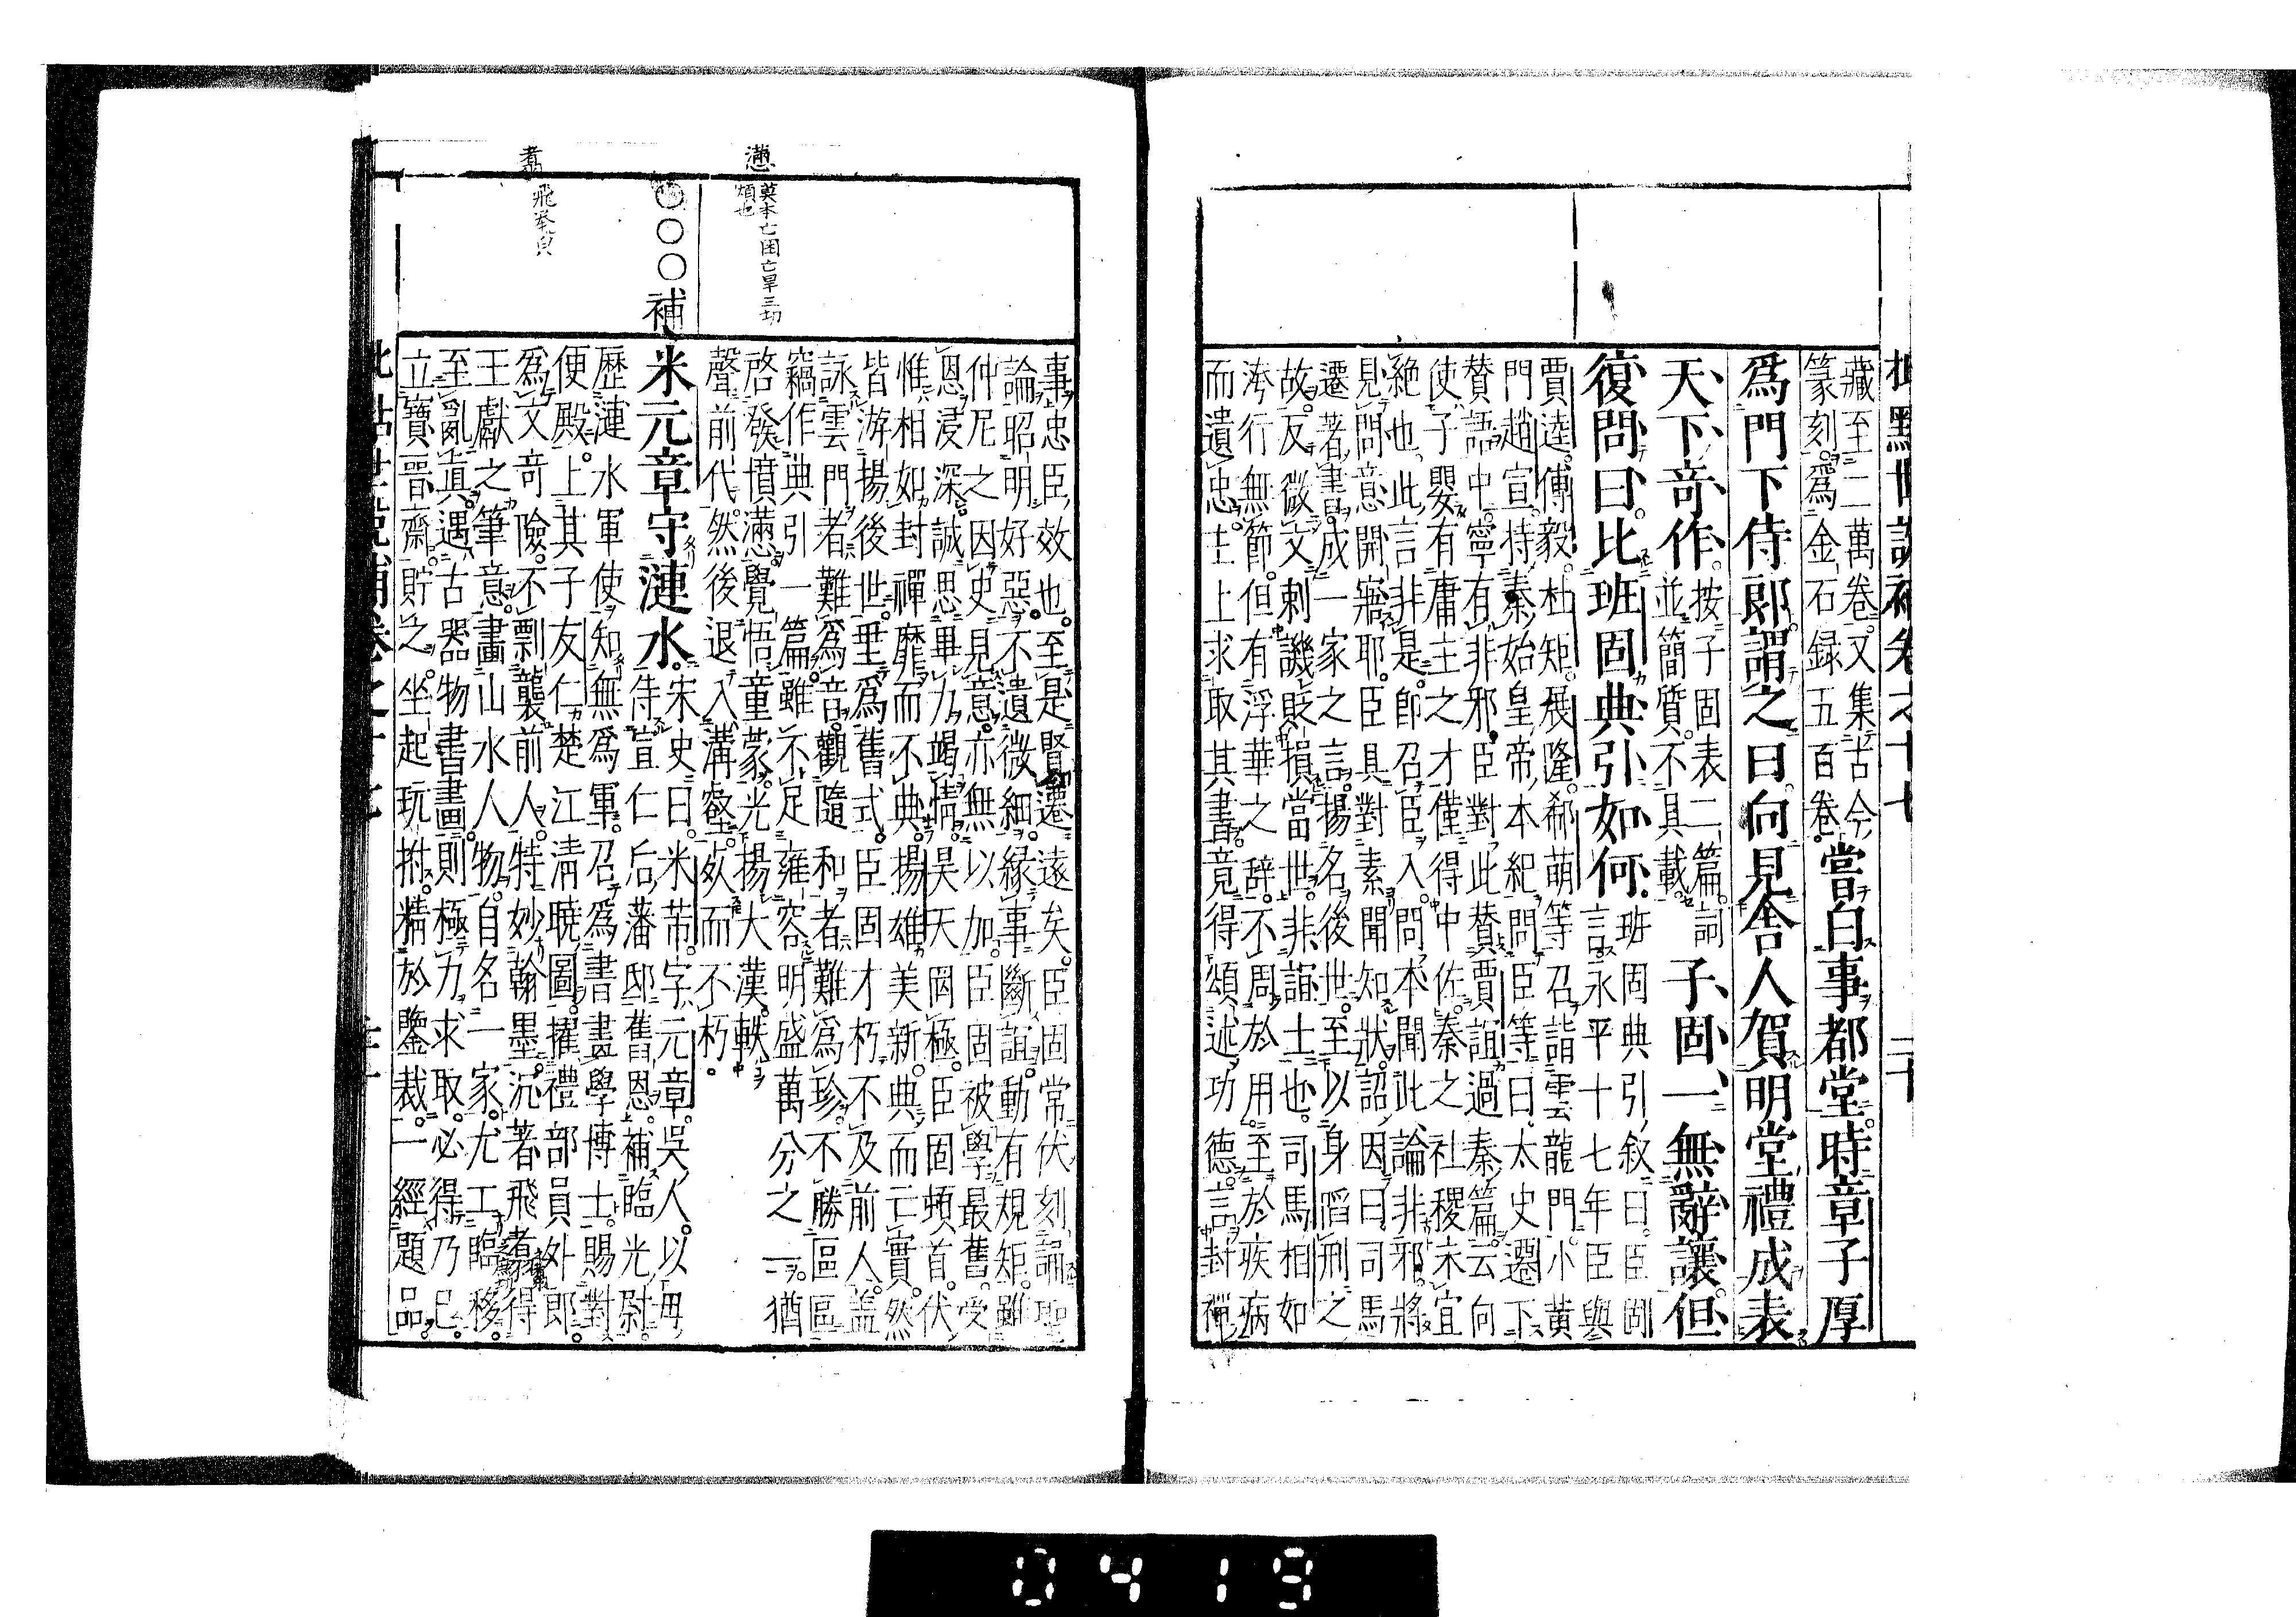 藏至二萬卷又集古今
篆刻爲金石録五百卷
嘗白事都堂時章子厚
爲門下侍郎謂之曰向見舍人賀明堂禮成表
天下奇作
按子固表二篇詞
並簡質不具載
子固一無辭讓但
復問曰比班固典引如何
班固典引敘曰臣固
言永平十七年臣與
賈逵傅毅杜矩展隆郗萌等召詣雲龍門小黄
門趙宣持秦始皇帝本紀問臣等曰太史遷下
賛語中寧有非邪臣對此賛賈誼過秦篇云向
使子嬰有庸主之才僅得中佐秦之社稷未宜
絶也此言非是即召臣入問本聞此論非邪將
見問意開寤耶臣具對素聞知狀詔因曰司馬
遷著書成一家之言揚名後世至以身䧟刑之
故反微文刺譏貶損當世非誼士也司馬相如
洿行無節但有浮華之辭不周於用至於疾病
而遺忠主上求取其書竟得頌述功德言封禪
事忠臣效也至是賢遷遠矣臣固常伏刻誦聖
論昭明好惡不遺微細緣事斷誼動有規矩雖
仲尼之因史見意亦無以加臣固被學最舊受
恩浸深誠思畢力竭情昊天罔極臣固頓首伏
惟相如封禪靡而不典揚雄美新典而亡實然
皆游揚後世垂爲舊式臣固才朽不及前人盖
詠雲門者難爲音觀隨和者難爲珍不勝區區
竊作典引一篇雖不足雍容明盛萬分之一猶
啓發憤懣覺悟童蒙光揚大漢軼
聲前代然後退入溝壑死而不朽
懣
莫本亡困亡旱三切
煩也
○○○補
米元章守漣水
宋史曰米芾字元章吳人以母
侍宣仁后藩邸舊恩補臨光尉
歷漣水軍使知無爲軍召爲書畫學博士賜對
便殿上其子友仁楚江淸曉圖擢禮部員外郎
爲文奇險不剽襲前人特妙翰墨沉著飛翥得
王獻之筆意畫山水人物自名一家尤工臨移
至亂真遇古器物書畫則極力求取必得乃已
立寶晋齋貯之坐起玩拊精於鑒裁一經題品
翥
飛举皃
0419